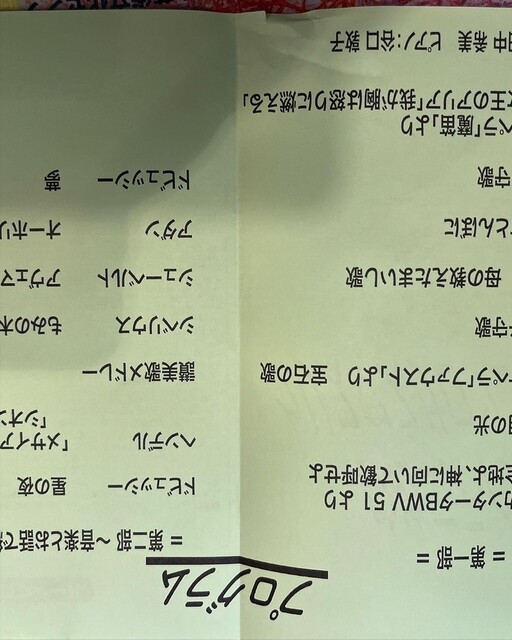 プログラム
= 第一部 =
カンタータBWV 51 より
全地よ、神に向いて歓呼せよ
の光
ペラ「ファウスト」より 宝石の歌
守歌
母の教えたまいし歌
とんぼに
守歌
ペラ「魔笛」より
女王のアリア「我が胸は怒りに燃える」
中 希美 ピアノ:谷口 敦子
= 第二部 ~音楽とお話で
ドビュッシー 星の夜
ヘンデル 「メサイア
「シオン
讃美歌メドレー
シベリウス もみの木
シューベルト アヴェマ
アダン オーホリ
ドビュッシー 夢